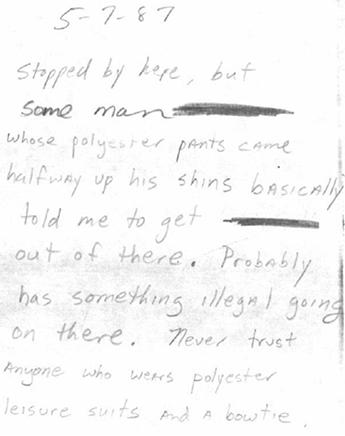 5-7-87
Stopped by here, but
some man
whose polyester pants came
halfway up his shins basically
told me to get
out of there. Probably
has something illegal going
on there. Never trust
anyone who wears polyester
leisure suits and a bowtie.